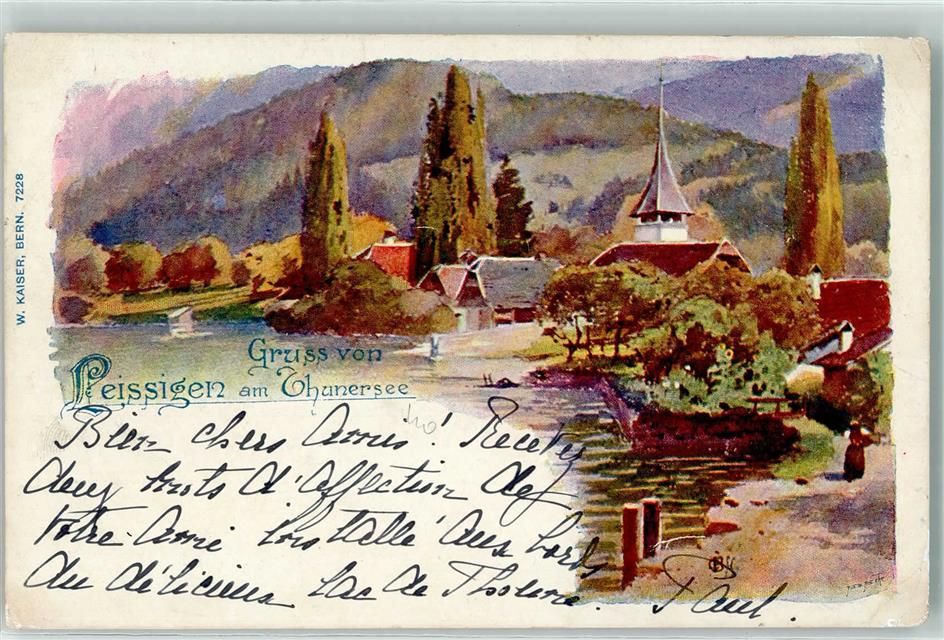 W. KAISER, BERN. 7228
Gruss von
Leissigen am Thunersee
Bien chers Amis! Recevez
deux mots d'affection de
votre Amie installée aux bords
du délicieux lac de Thoune.
Paul.